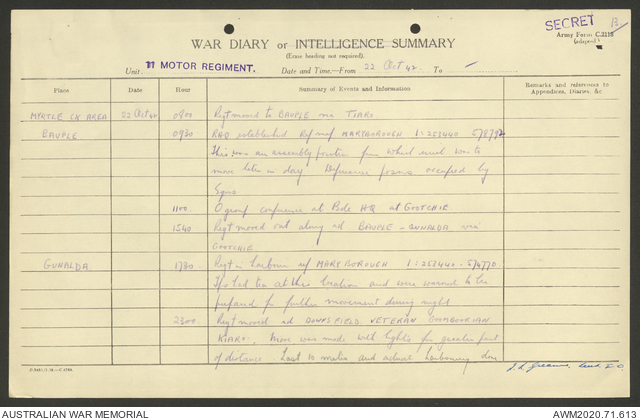 SECRET
Army Form C.2118
(adapted)
WAR DIARY or INTELLIGENCE SUMMARY
(Erase heading not required).
Unit 11 MOTOR REGIMENT. Date and Time—From 22 Oct 42 To
Place Date Hour Summary of Events and Information Remarks and references to
Appendices, Diaries, &c.
MYRTLE CK AREA 22 Oct 42 0900 Regt moved to BAUPLE via TIARO
BAUPLE 0930 RHQ established Ref map MARYBOROUGH 1:253440 578792
This was an assembly position from which unit was to
move later in day. Defensive posns occupied by
Sqns
1100 O group conference at Bde HQ at GOOTCHIE
1540 Regt moved out along rd BAUPLE - GUNALDA via
GOOTCHIE
GUNALDA 1730 Regt in harbour ref MARYBOROUGH 1:253440 - 574770
Tps had tea at this location and were warned to be
prepared for further movement during night
2300 Regt moved rd DOWNSFIELD VETERAN GOOMBOORIAN
KIARO. Move was made with lights for greater part
of distance. Last 10 miles and actual harbouring done
AUSTRALIAN WAR MEMORIAL AWM2020.71.613